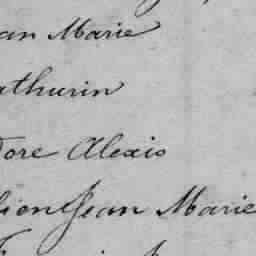 an Marie
athurin
dore Alexis
lien Jean Marie